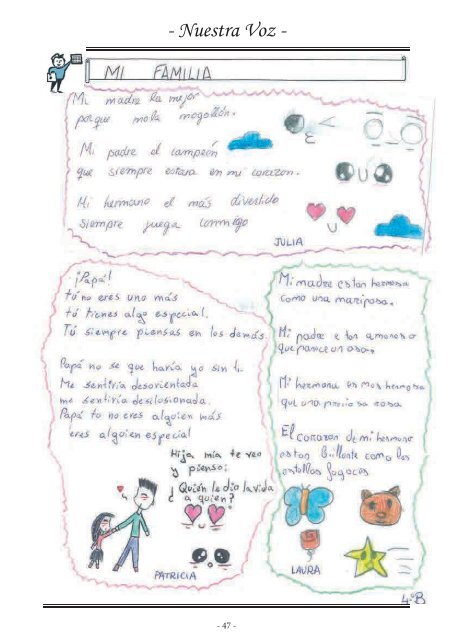 - Nuestra Voz -
MI FAMILIA
Mi madre la mejor
porque mola mogollón.
Mi padre el campeón
que siempre estara en mi corazon.
Mi hermano el más divertido
siempre juega conmigo
JULIA
¡Papá!
tú no eres uno más
tú tienes algo especial.
Tú siempre piensas en los demás.
Papá no se que haría yo sin ti.
Me sentiría desorientada
me sentiría desilusionada.
Papá tu no eres alguien más
eres alguien especial
Hija mía te veo
y pienso:
¿Quién le dio la vida
a quien?
PATRICIA
Mi madre es tan hermosa
como una mariposa.
Mi padre e tan amoroso
que parece un oso.
Mi hermana es mas hermosa
que una preciosa rosa
El corazon de mi hermano
es tan brillante como las
estrellas fugaces
LAURA
4ºB
- 47 -